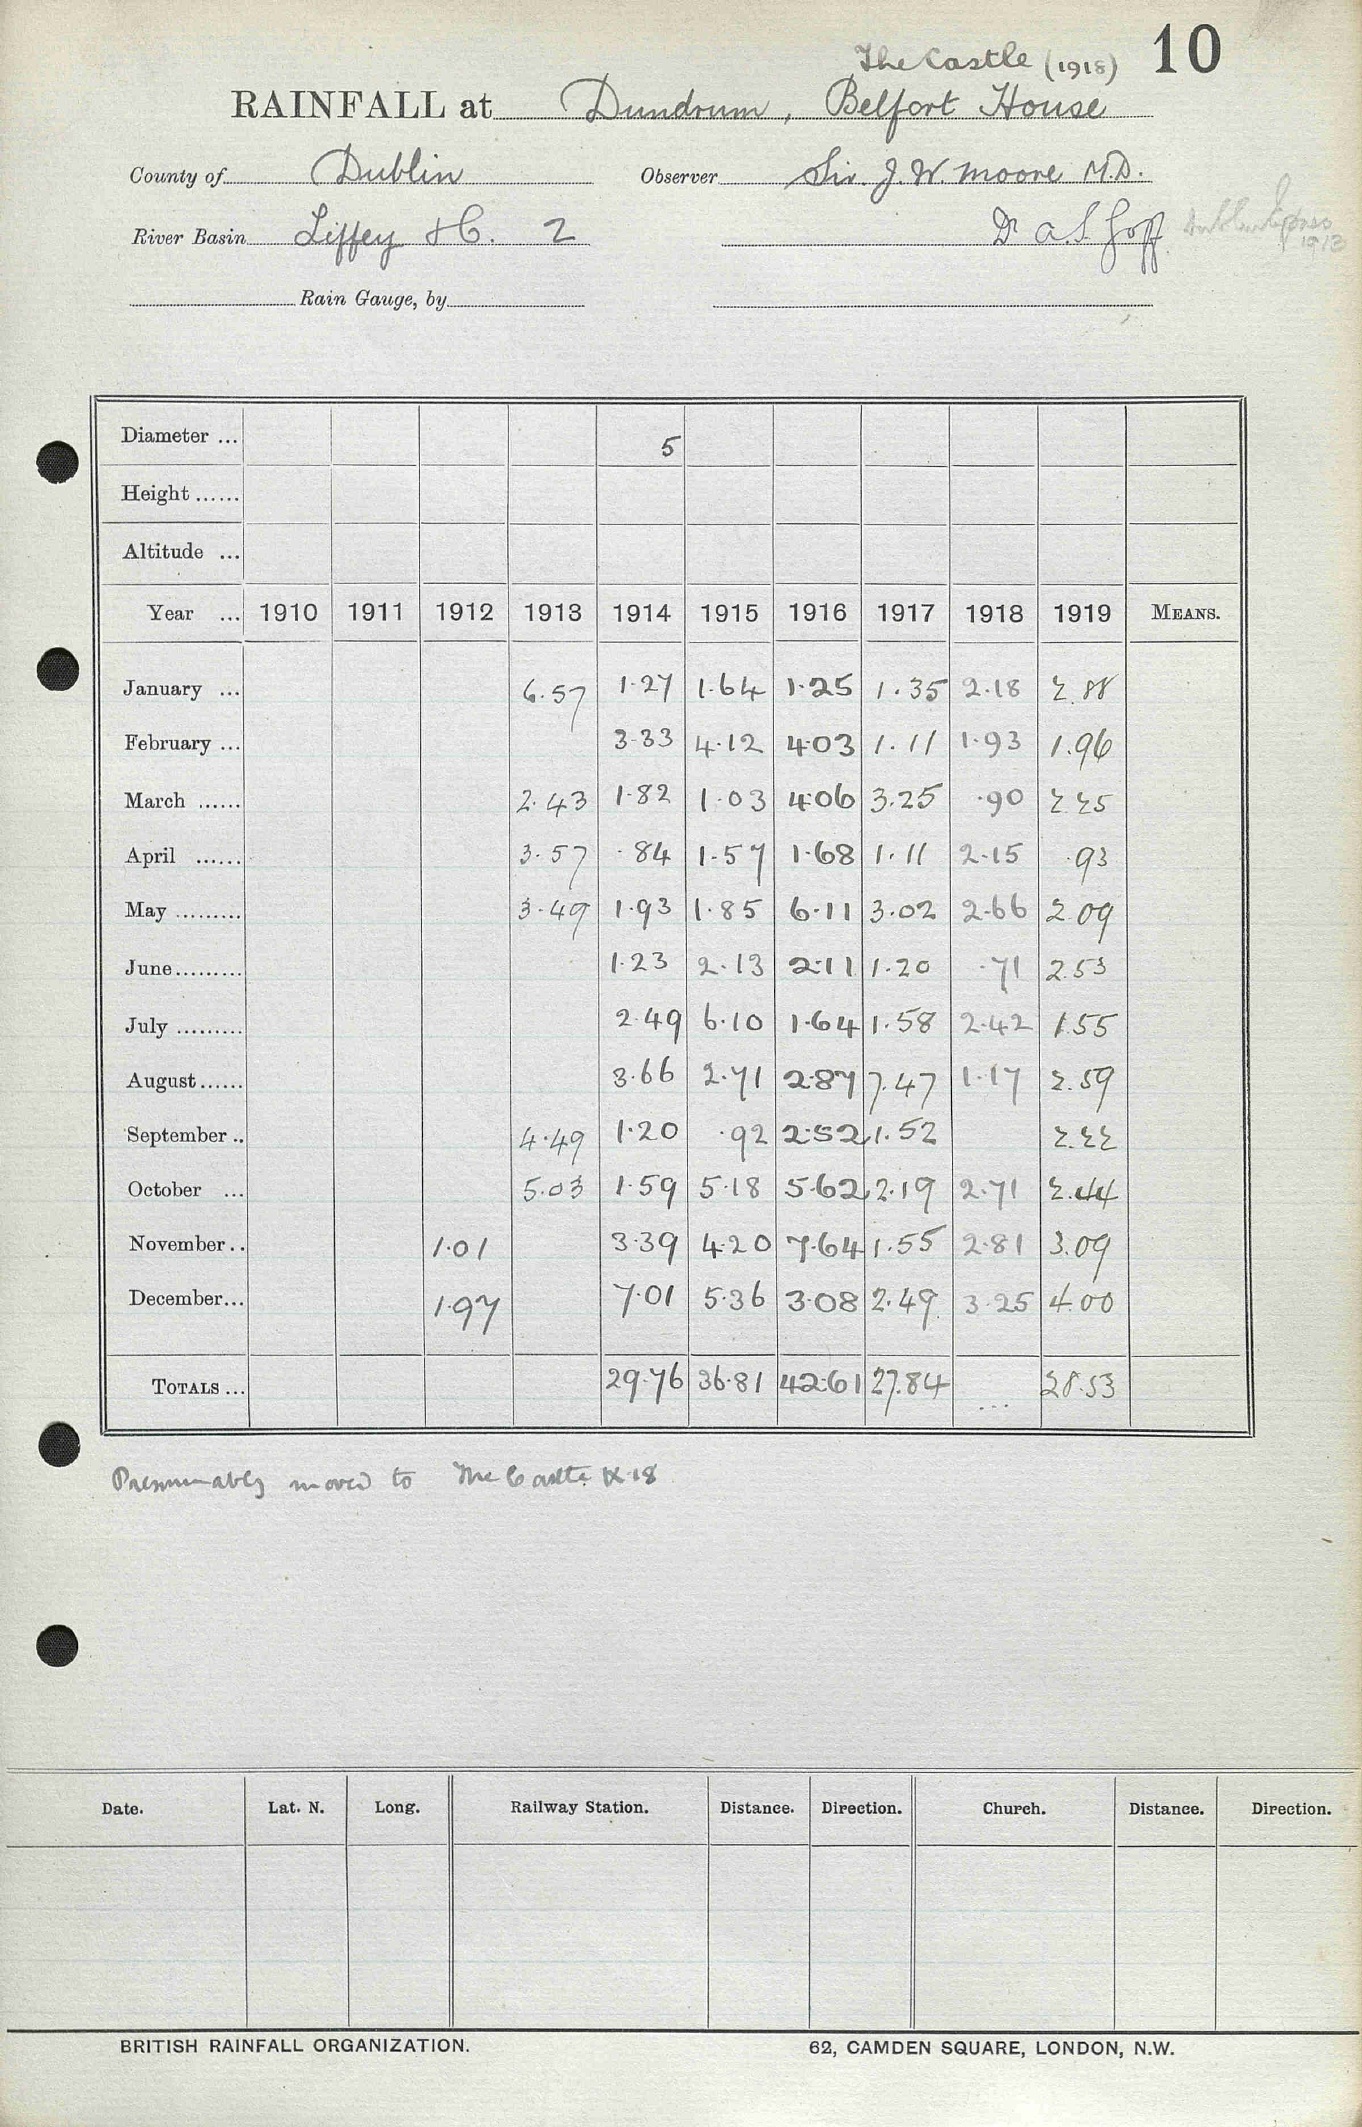 The Castle (1918) 10
RAINFALL at Dundrum, Belfort House
County of Dublin Observer Sir. J. W. Moore M.D.
River Basin Liffey &c. 2 Dr A S Goff
1913
Rain Gauge, by
Diameter ... 5
Height ......
Altitude ...
Year ... 1910 1911 1912 1913 1914 1915 1916 1917 1918 1919 MEANS.
January ... 6.57 1.27 1.64 1.25 1.35 2.18 2.88
February ... 3.33 4.12 4.03 1.11 1.93 1.96
March ...... 2.43 1.82 1.03 4.06 3.25 .90 2.25
April ...... 3.57 .84 1.57 1.68 1.11 2.15 .93
May ......... 3.49 1.93 1.85 6.11 3.02 2.66 2.09
June......... 1.23 2.13 2.11 1.20 .71 2.53
July ......... 2.49 6.10 1.64 1.58 2.42 1.55
August...... 3.66 2.71 2.87 7.47 1.17 2.59
September .. 4.49 1.20 .92 2.52 1.52 2.22
October ... 5.03 1.59 5.18 5.62 2.19 2.71 2.44
November.. 1.01 3.39 4.20 7.64 1.55 2.81 3.09
December... 1.97 7.01 5.36 3.08 2.49 3.25 4.00
TOTALS ... 29.76 36.81 42.61 27.84 ... 28.53
Presumably moved to The Castle IX 18
Date. Lat. N. Long. Railway Station. Distance. Direction. Church. Distance. Direction.
BRITISH RAINFALL ORGANIZATION. 62, CAMDEN SQUARE, LONDON, N.W.